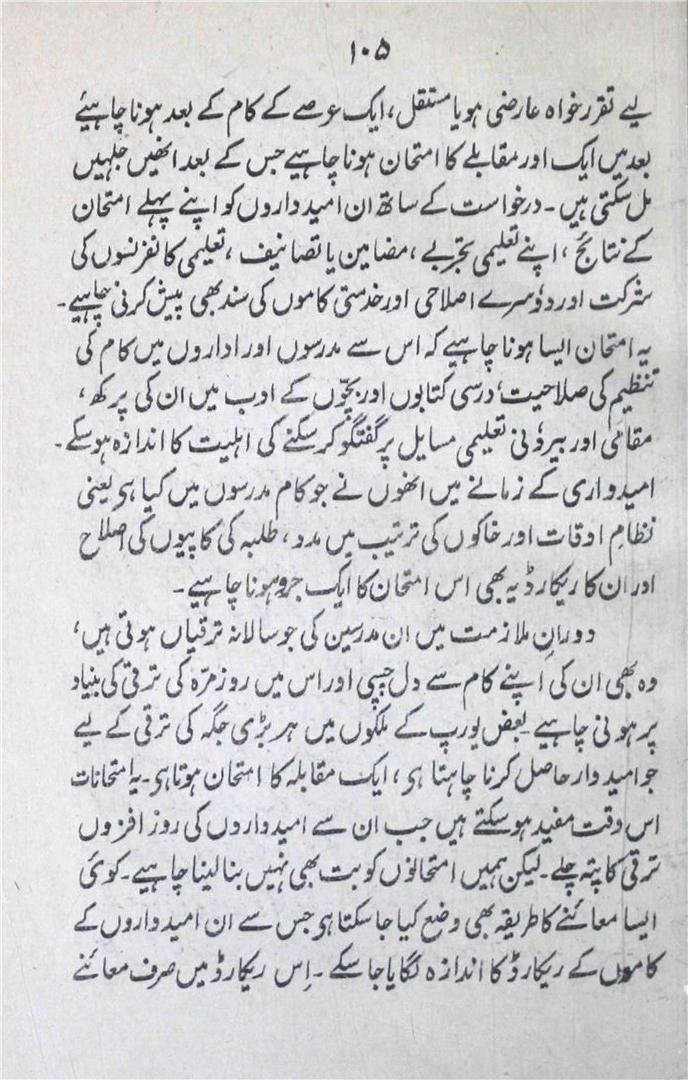 ۱۰۵
لیے تقرر خواہ عارضی ہو یا مستقل، ایک عرصے کے کام کے بعد ہونا چاہیئے
بعد میں ایک اور مقابلے کا امتحان ہونا چاہیے جس کے بعد انھیں جگہیں
مل سکتی ہیں۔ درخواست کے ساتھ ان امیدواروں کو اپنے پہلے امتحان
کے نتائج، اپنے تعلیمی تجربے، مضامین یا تصانیف، تعلیمی کانفرنسوں کی
شرکت اور دوسرے اصلاحی اور خدمتی کاموں کی سند بھی پیش کرنی چاہیے۔
یہ امتحان ایسا ہونا چاہیے کہ اس سے مدرسوں اور اداروں میں کام کی
تنظیم کی صلاحیت، درسی کتابوں اور بچّوں کے ادب میں ان کی پرکھ،
مقامی اور بیرونی تعلیمی مسایل پر گفتگو کر سکنے کی اہلیت کا اندازہ ہوسکے۔
امیدواری کے زمانے میں انھوں نے جو کام مدرسوں میں کیا ہو یعنی
نظامِ اوقات اور خاکوں کی ترتیب میں مدد، طلبہ کی کاپیوں کی اصلاح
اور ان کا ریکارڈ یہ بھی اس امتحان کا ایک جزو ہونا چاہیے۔
دورانِ ملازمت میں ان مدرسین کی جو سالانہ ترقیاں ہوتی ہیں،
وہ بھی ان کی اپنے کام سے دل چسپی اور اس میں روزمرّہ کی ترقی کی بنیاد
پر ہونی چاہیے۔ بعض یورپ کے ملکوں میں ہر بڑی جگہ کی ترقی کے لیے
جو امیدوار حاصل کرنا چاہتا ہو، ایک مقابلہ کا امتحان ہوتا ہو۔ یہ امتحانات
اس وقت مفید ہوسکتے ہیں جب ان سے امیدواروں کی روز افزوں
ترقی کا پتہ چلے۔ لیکن ہمیں امتحانوں کو بت بھی نہیں بنا لینا چاہیے۔ کوئی
ایسا معائنے کا طریقہ بھی وضع کیا جاسکتا ہو جس سے ان امیدواروں کے
کاموں کے ریکارڈ کا اندازہ لگایا جاسکے۔ اِس ریکارڈ میں صرف معائنے